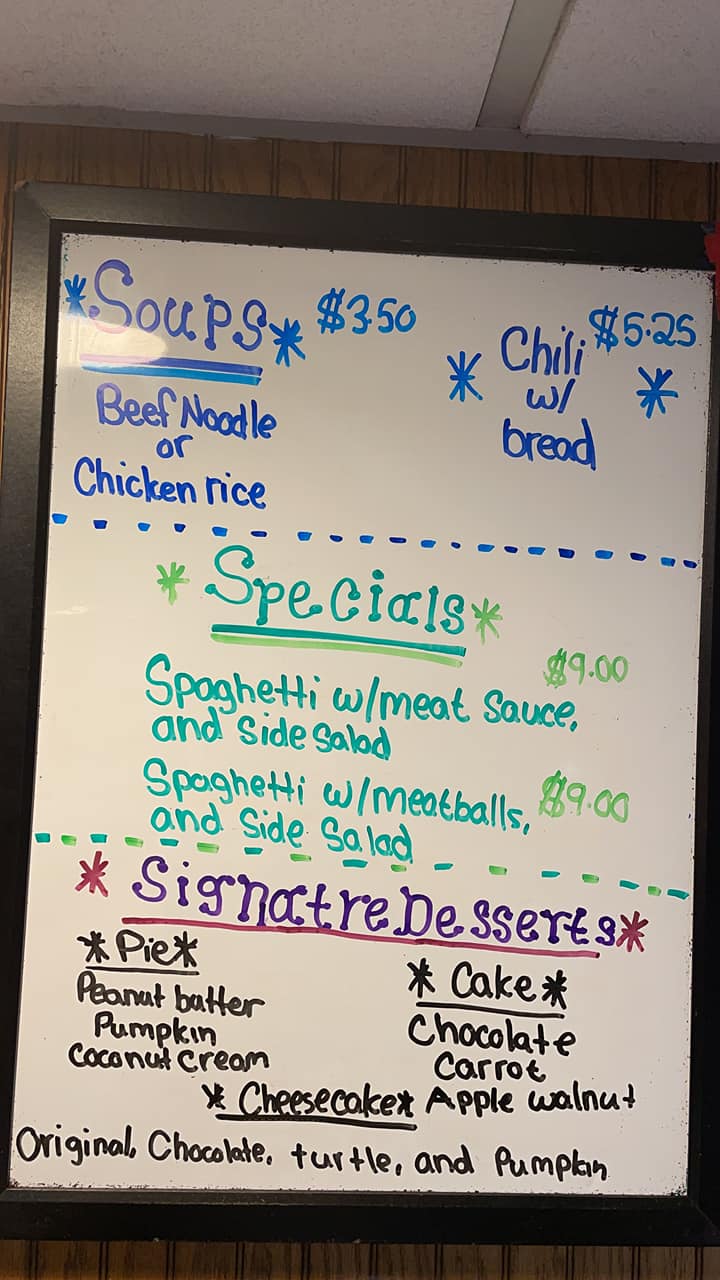 *Soups* $3.50
Beef Noodle
or
Chicken rice
$5.25
* Chili *
w/
bread
* Specials *
$9.00
Spaghetti w/meat Sauce,
and Side Salad
Spaghetti w/meatballs, $9.00
and Side Salad
* Signatre Desserts *
*Pie*
Peanut butter
Pumpkin
Coconut Cream
* Cake *
Chocolate
Carrot
Apple walnut
* Cheesecake *
Original, Chocolate, turtle, and Pumpkin